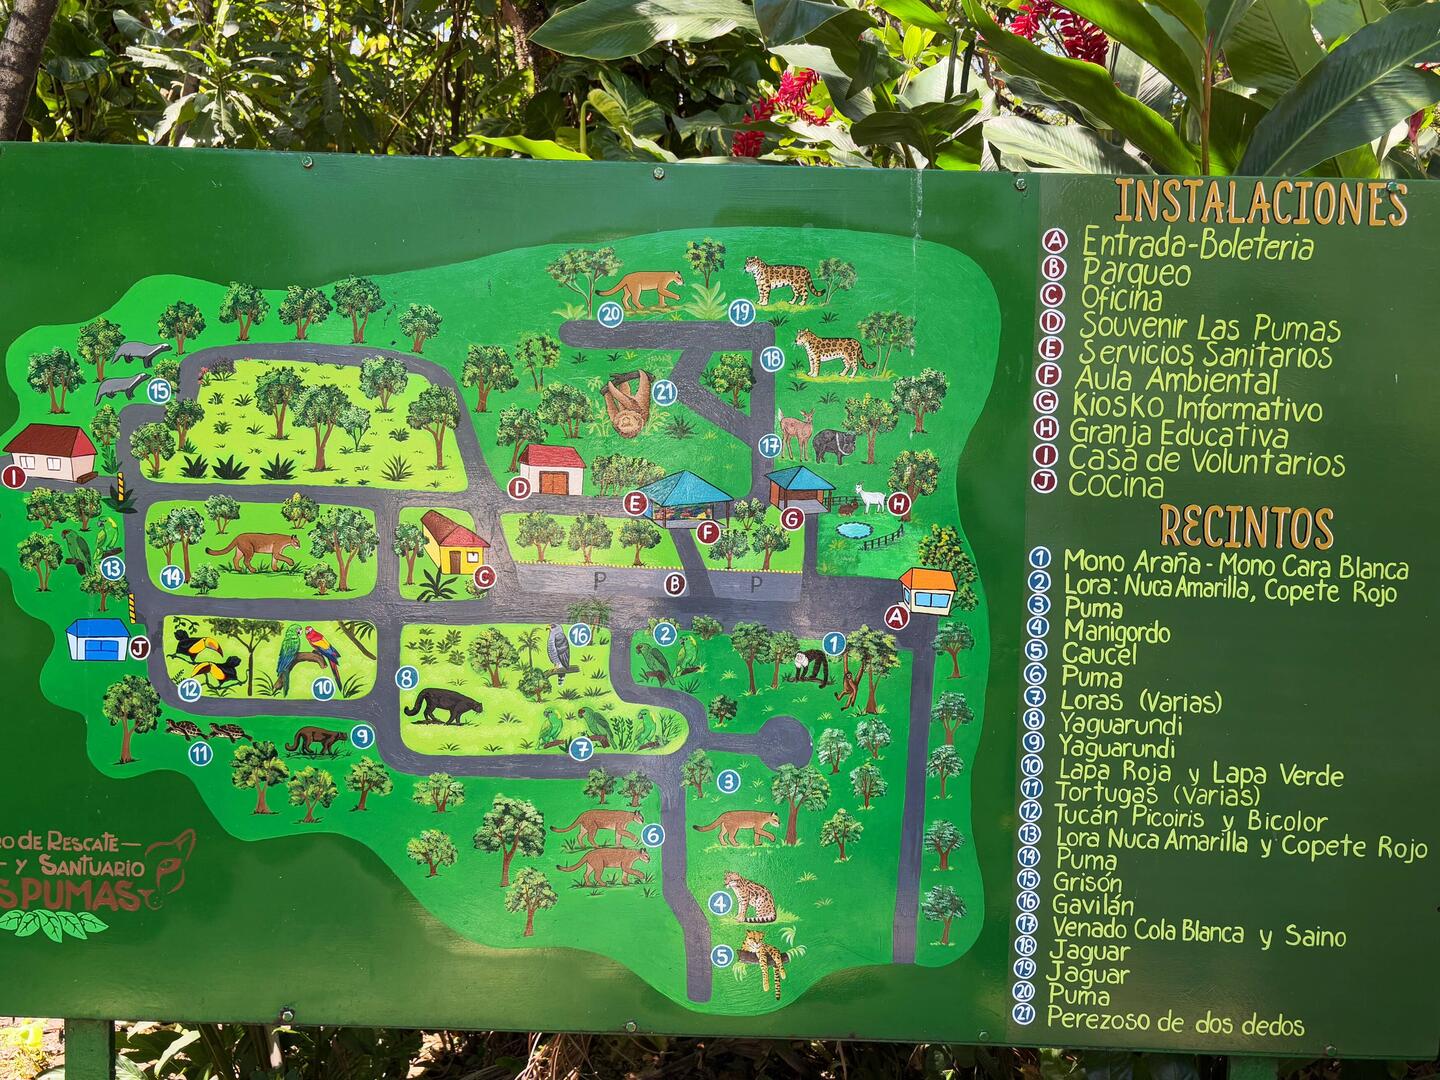 INSTALACIONES
A Entrada-Boleteria
B Parqueo
C Oficina
D Souvenir Las Pumas
E Servicios Sanitarios
F Aula Ambiental
G Kiosko Informativo
H Granja Educativa
I Casa de Voluntarios
J Cocina
RECINTOS
1 Mono Araña - Mono Cara Blanca
2 Lora: Nuca Amarilla, Copete Rojo
3 Puma
4 Manigordo
5 Caucel
6 Puma
7 Loras (Varias)
8 Yaguarundi
9 Yaguarundi
10 Lapa Roja y Lapa Verde
11 Tortugas (Varias)
12 Tucán Picoiris y Bicolor
13 Lora Nuca Amarilla y Copete Rojo
14 Puma
15 Grisón
16 Gavilán
17 Venado Cola Blanca y Saino
18 Jaguar
19 Jaguar
20 Puma
21 Perezoso de dos dedos
20
19
18
21
15
17
I
D
E
F
G
H
13
14
C
P
B
P
A
J
12
10
8
16
2
1
11
9
7
3
6
4
5
RO DE RESCATE
Y SANTUARIO
S PUMAS